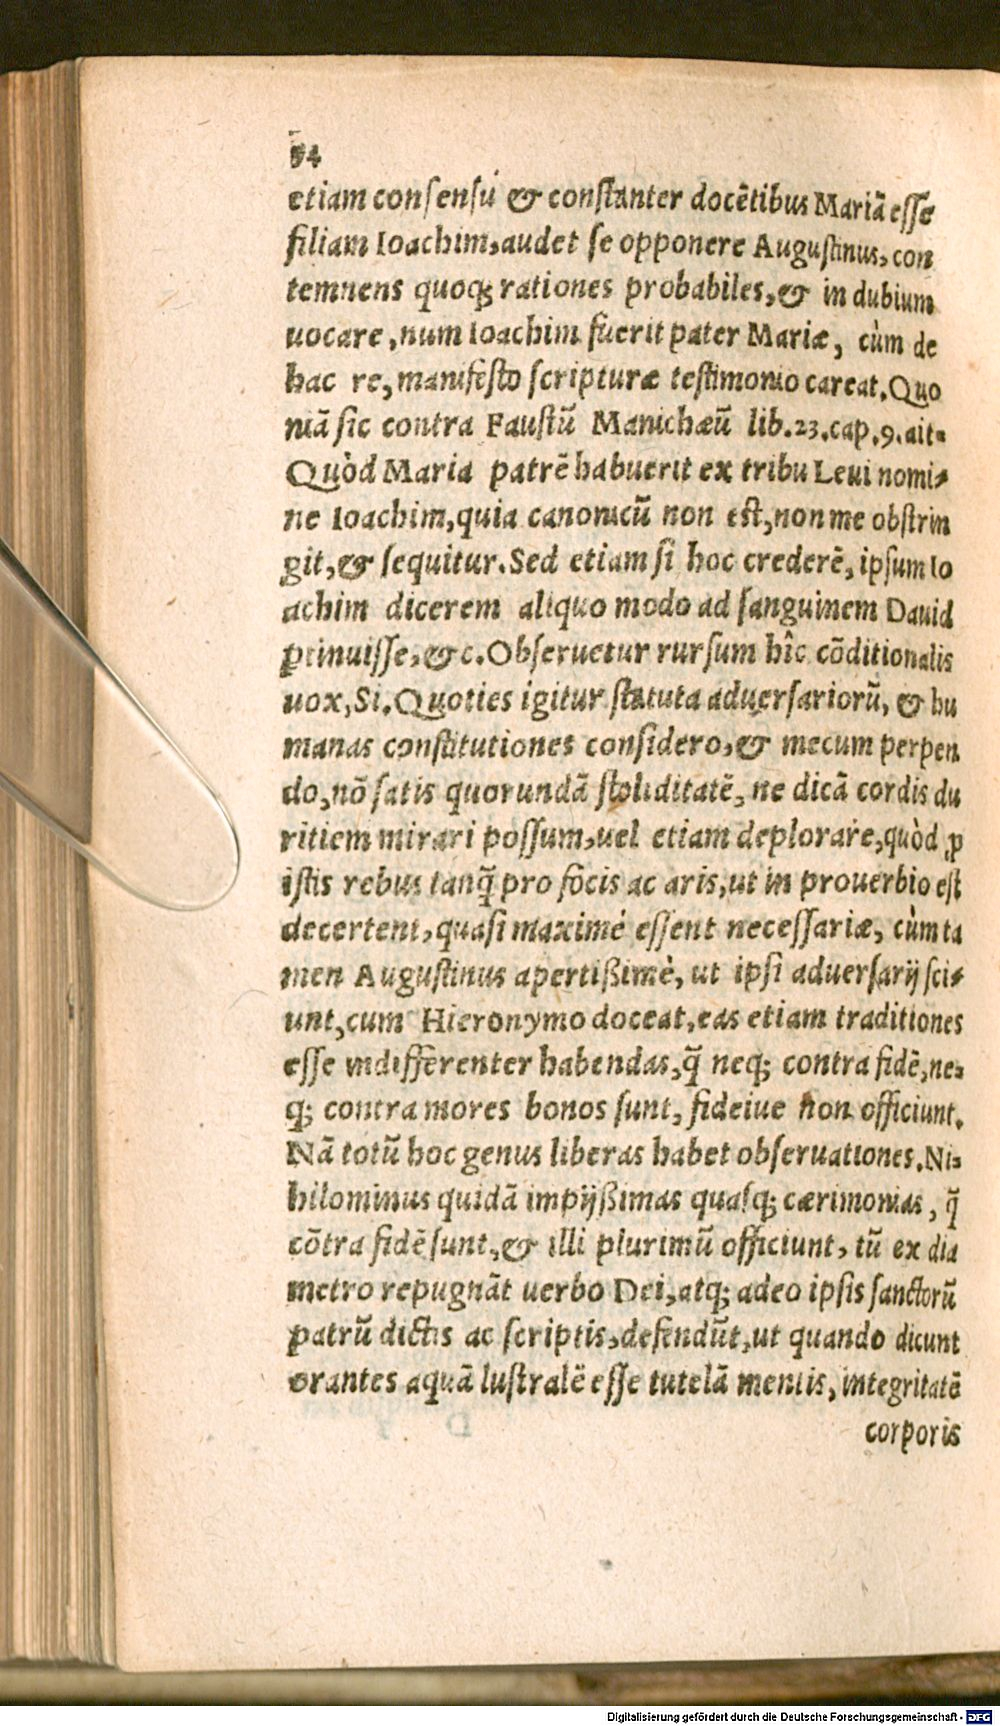 54
etiam consensú & constanter docētibus Mariā esse
filiam Ioachim, audet se opponere Augustinus, con
temnens quoq; rationes probabiles, & in dubium
uocare, num Ioachim fuerit pater Mariæ, cùm de
hac re, manifesto scripturæ testimonio careat. Quo
niā sic contra Faustū Manichæū lib. 23. cap. 9. ait.
Quòd Maria patrē habuerit ex tribu Leui nomi-
ne Ioachim, quia canonicū non est, non me obstrin
git, & sequitur. Sed etiam si hoc crederē, ipsum Io
achim dicerem aliquo modo ad sanguinem Dauid
ꝑtinuisse, &c. Obseruetur rursum hîc cōditionalis
uox, Si. Quoties igitur statuta aduersariorū, & hu
manas constitutiones considero, & mecum perpen
do, nō satis quorundā stoliditatē, ne dicā cordis du
ritiem mirari possum, uel etiam deplorare, quòd ꝓ
istis rebus tanq̃ pro focis ac aris, ut in prouerbio est
decertent, quasi maximè essent necessariæ, cùm ta
men Augustinus apertißimè, ut ipsi aduersarij sci-
unt, cum Hieronymo doceat, eas etiam traditiones
esse indifferenter habendas, q̃ neq; contra fidē, ne-
q; contra mores bonos sunt, fideiue non officiunt.
Nā totū hoc genus liberas habet obseruationes. Ni-
hilominus quidā impijßimas quasq; cærimonias, q̃
cōtra fidē sunt, & illi plurimū officiunt, tū ex dia
metro repugnāt uerbo Dei, atq; adeo ipsis sanctorū
patrū dictis ac scriptis, defendūt, ut quando dicunt
orantes aquā lustralē esse tutelā mentis, integritatē
corporis
Digitalisierung gefördert durch die Deutsche Forschungsgemeinschaft - DFG